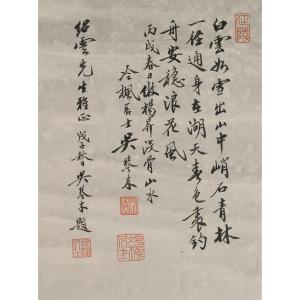 白雲如雪出山中峭石青林
一径通身在湖天春色裏釣
舟安穩浪花風
丙戌春日倣楊昇没骨山水
冷楓居士吴琴木
紹雲先生雅正 戊子秋日吴琴木題